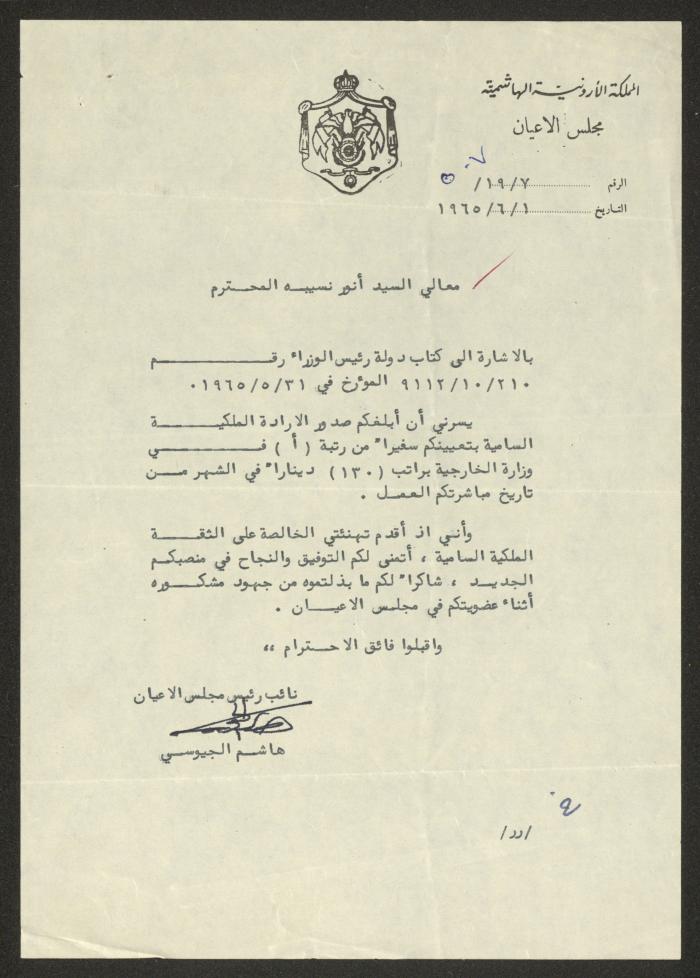 المملكة الأردنية الهاشمية
مجلس الاعيان
الرقم ١٩/٧/
التاريخ ١٩٦٥/٦/١
معالي السيد أنور نسيبه المحترم
بالاشارة الى كتاب دولة رئيس الوزراء رقم
٩١١٢/١٠/٢١٠ المؤرخ في ١٩٦٥/٥/٣١ .
يسرني أن أبلغكم صدور الارادة الملكية
السامية بتعيينكم سفيراً من رتبة ( أ ) في
وزارة الخارجية براتب (١٣٠) ديناراً في الشهر من
تاريخ مباشرتكم العمل .
وأنني اذ أقدم تهنئتي الخالصة على الثقة
الملكية السامية ، أتمنى لكم التوفيق والنجاح في منصبكم
الجديد ، شاكراً لكم ما بذلتموه من جهود مشكوره
أثناء عضويتكم في مجلس الاعيان .
واقبلوا فائق الاحترام ،،
نائب رئيس مجلس الاعيان
هاشم الجيوسي
/رر/